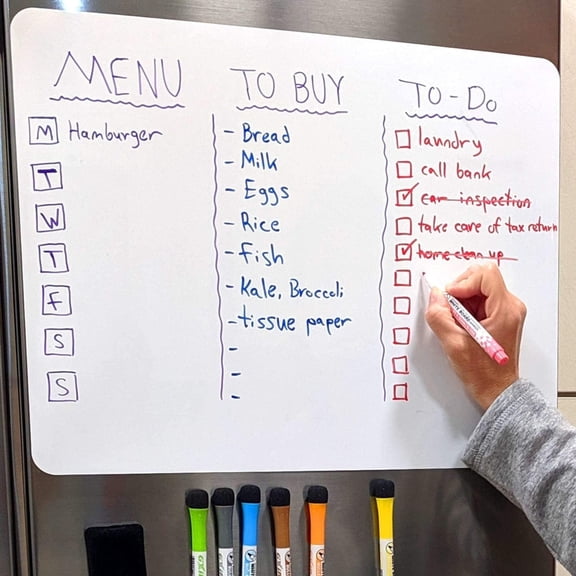 MENU
M Hamburger
T
W
T
F
S
S
TO BUY
- Bread
- Milk
- Eggs
- Rice
- Fish
- Kale, Broccoli
- tissue paper
-
-
-
TO-DO
laundry
call bank
car inspection
take care of tax return
home clean up